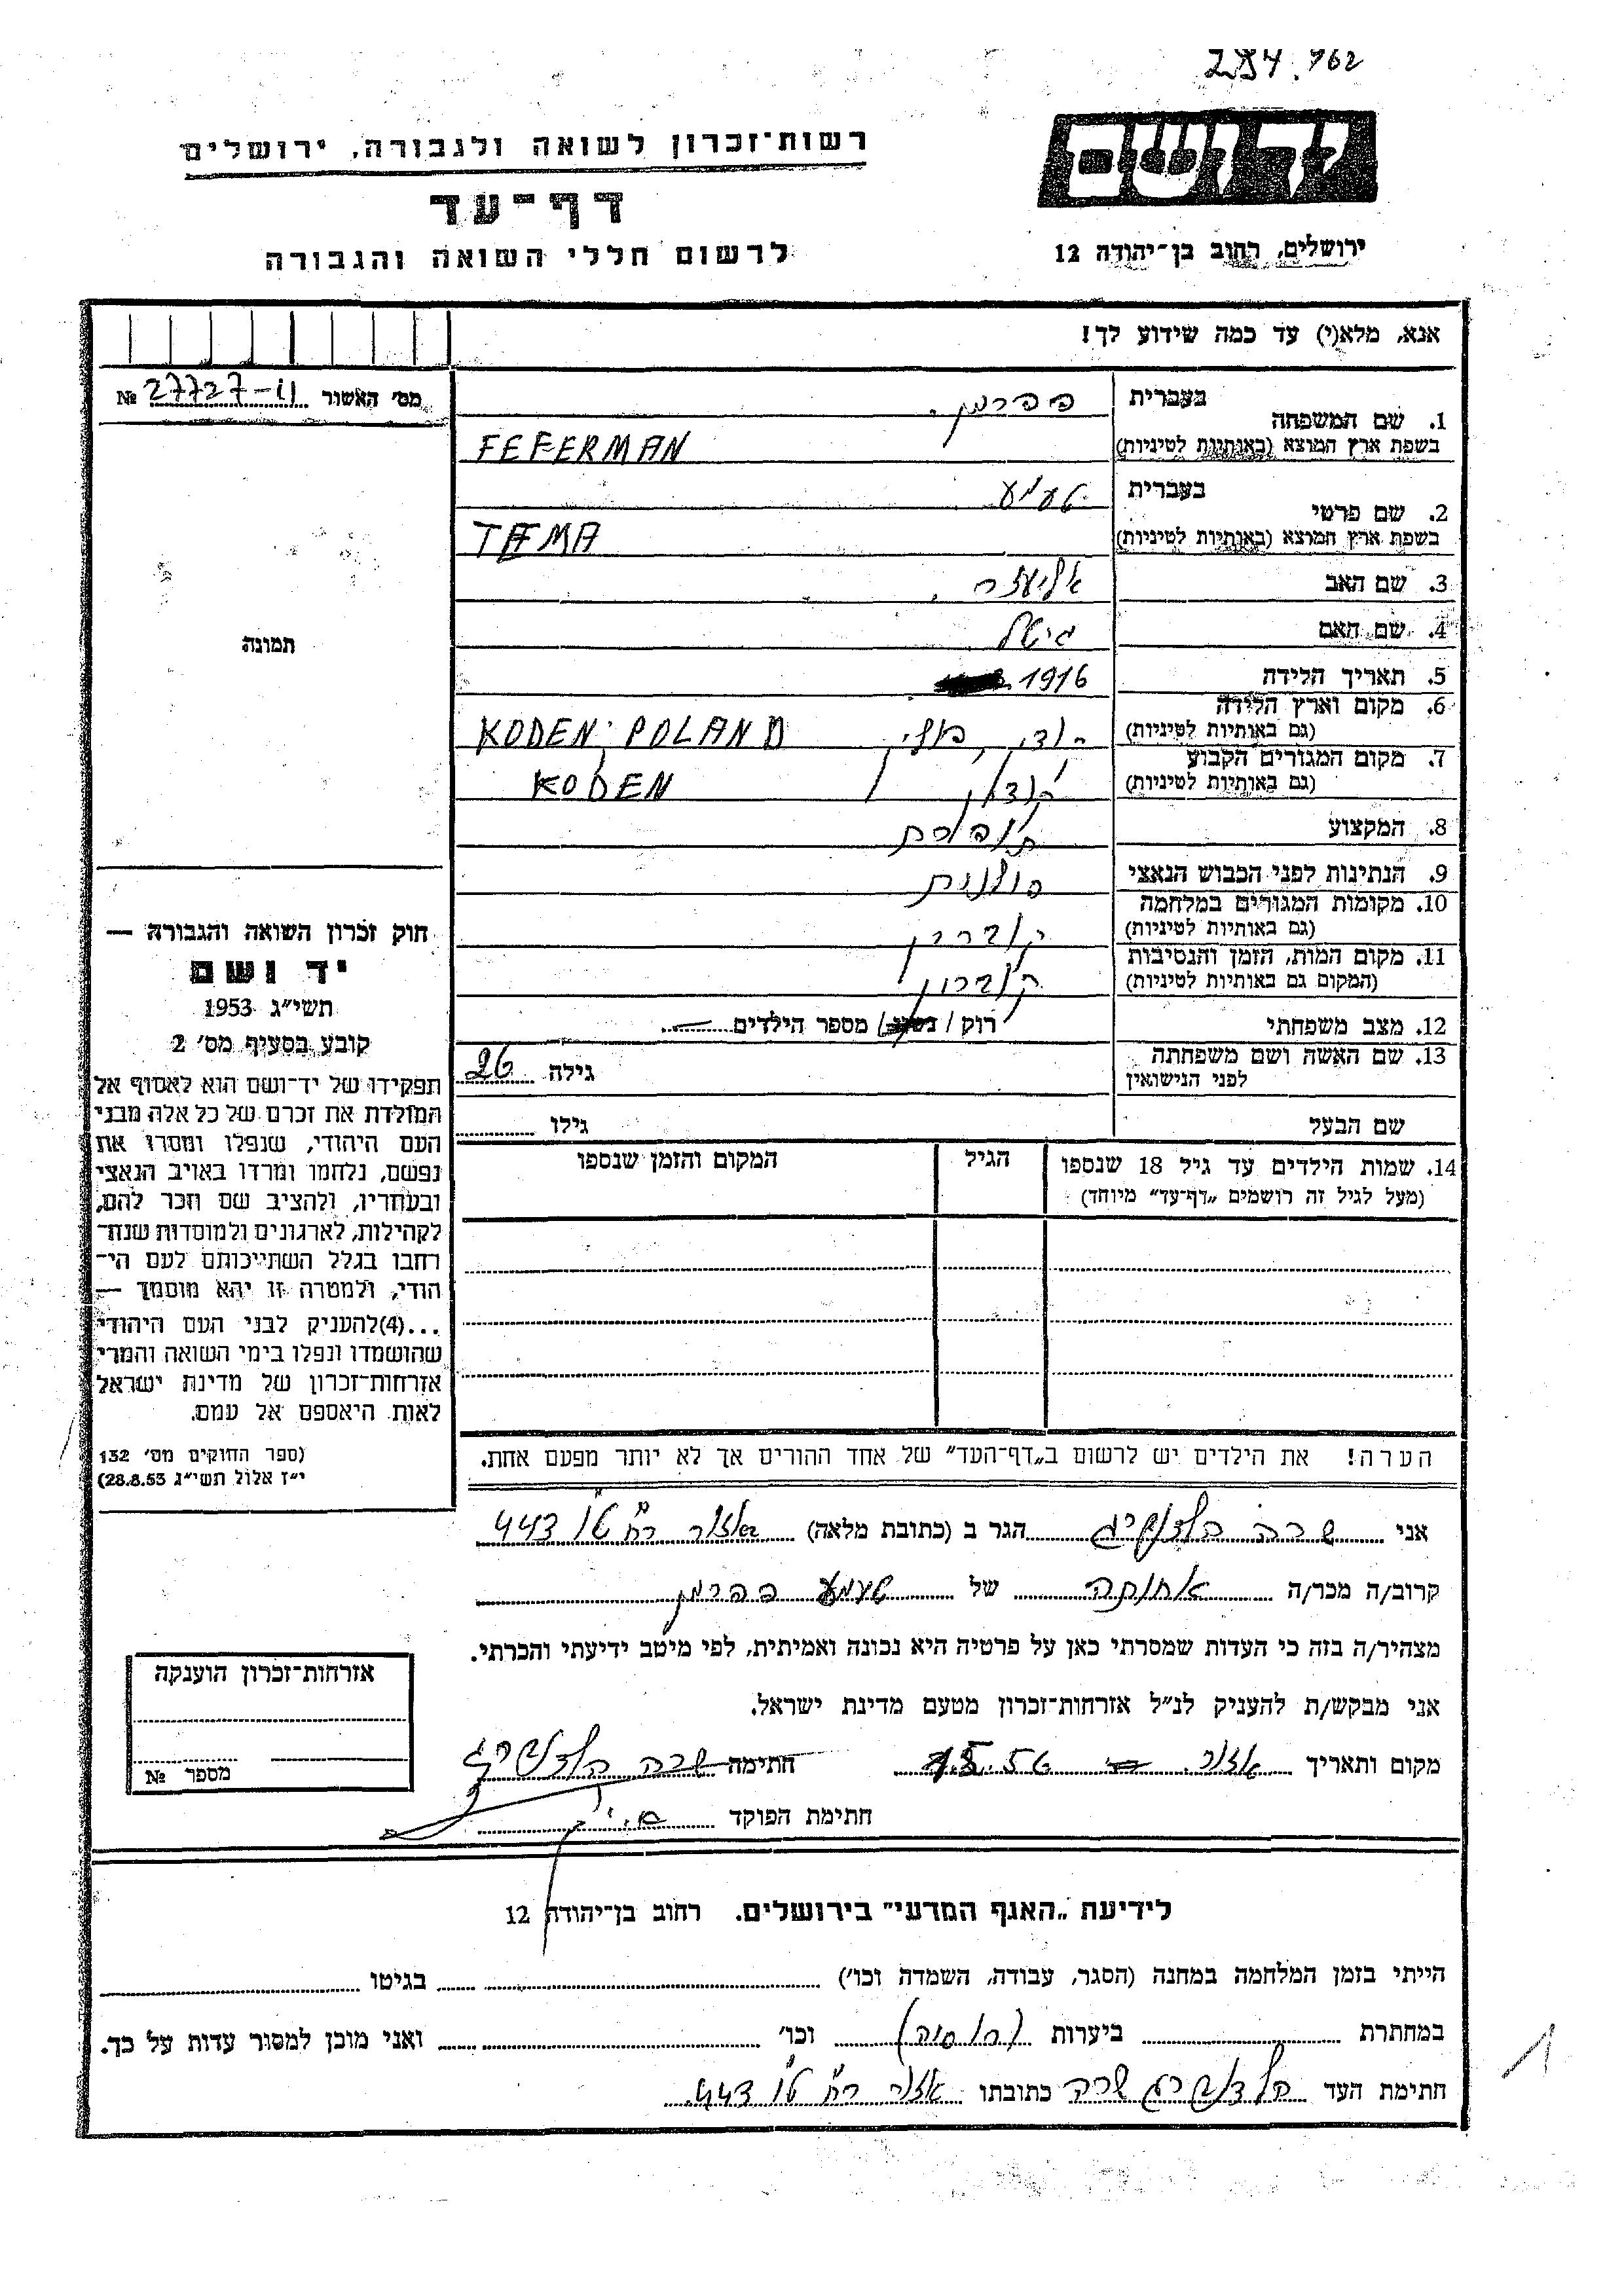 284.762
יד ושם
ירושלים, רחוב בן־יהודה 12
רשות־זכרון לשואה ולגבורה, ירושלים
דף־עד
לרשום חללי השואה והגבורה
אנא, מלא(י) עד כמה שידוע לך!
מס' האשור 27727-11 №
1. שם המשפחה בעברית פפרמן
בשפת ארץ המוצא (באותיות לטיניות) FEFERMAN
2. שם פרטי בעברית טעמע
בשפת ארץ המוצא (באותיות לטיניות) TEMA
3. שם האב אליעזר
4. שם האם גיטל
5. תאריך הלידה 1916
6. מקום וארץ הלידה (גם באותיות לטיניות) קודן, פולין KODEN POLAND
7. מקום המגורים הקבוע (גם באותיות לטיניות) קודען KODEN
8. המקצוע תופרת
9. הנתינות לפני הכבוש הנאצי פולנית
10. מקומות המגורים במלחמה (גם באותיות לטיניות) קוברין
11. מקום המות, הזמן והנסיבות (המקום גם באותיות לטיניות) קוברין
12. מצב משפחתי רוק / נשוי / מספר הילדים —
13. שם האשה ושם משפחתה לפני הנישואין גילה 26
שם הבעל גילו
14. שמות הילדים עד גיל 18 שנספו (מעל לגיל זה רושמים „דף־עד" מיוחד) הגיל המקום והזמן שנספו
הערה! את הילדים יש לרשום ב„דף־העד" של אחד ההורים אך לא יותר מפעם אחת.
תמונה
חוק זכרון השואה והגבורה —
יד ושם
תשי"ג 1953
קובע בסעיף מס' 2
תפקידו של יד־ושם הוא לאסוף אל
המולדת את זכרם של כל אלה מבני
העם היהודי, שנפלו ומסרו את
נפשם, נלחמו ומרדו באויב הנאצי
ובעוזריו, ולהציב שם וזכר להם,
לקהילות, לארגונים ולמוסדות שנח־
רבו בגלל השתייכותם לעם הי־
הודי, ולמטרה זו יהא מוסמך —
...(4)להעניק לבני העם היהודי
שהושמדו ונפלו בימי השואה והמרי
אזרחות־זכרון של מדינת ישראל
לאות היאספם אל עמם.
(ספר החוקים מס' 132
י"ז אלול תשי"ג 28.8.53)
אני שרה הולצברג הגר ב (כתובת מלאה) אזור רח' ט"ו 443
קרוב/ה מכר/ה אחותה של טעמע פפרמן
מצהיר/ה בזה כי העדות שמסרתי כאן על פרטיה היא נכונה ואמיתית, לפי מיטב ידיעתי והכרתי.
אני מבקש/ת להעניק לנ"ל אזרחות־זכרון מטעם מדינת ישראל.
מקום ותאריך אזור 56 חתימה שרה הולצברג
חתימת הפוקד
אזרחות־זכרון הוענקה
מספר №
לידיעת „האגף המדעי" בירושלים. רחוב בן־יהודה 12
הייתי בזמן המלחמה במחנה (הסגר, עבודה, השמדה וכו') בגיטו
במחתרת ביערות (רוסיה) וכו' ואני מוכן למסור עדות על כך.
חתימת העד הולצברג שרה כתובתו אזור רח' ט"ו 443
1